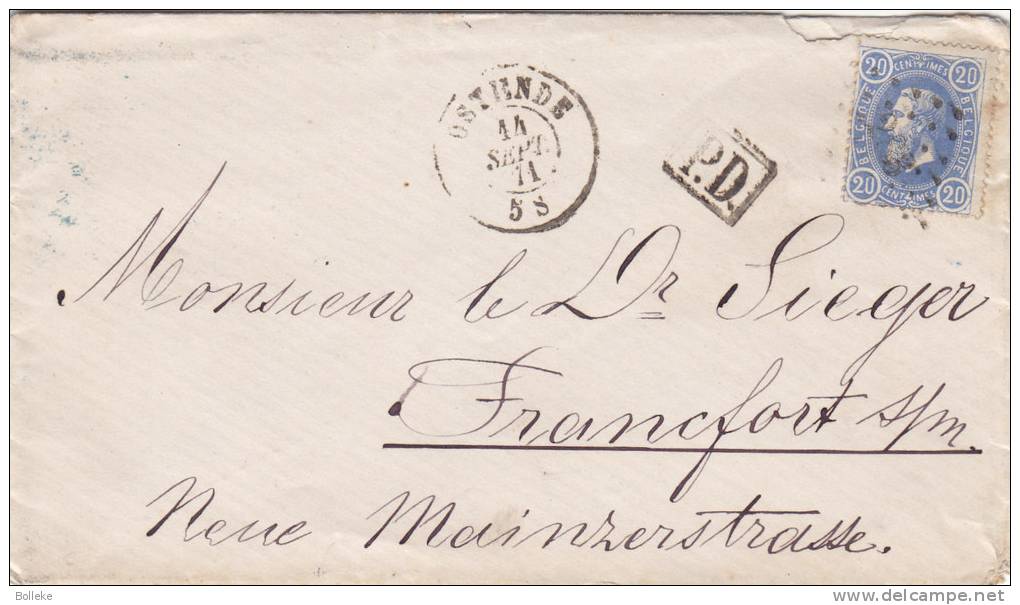 OSTENDE
14
SEPT.
71
5 S
P.D.
20 CENTIMES 20
BELGIQUE BELGIQUE
20 CENTIMES 20
Monsieur le Dr Sieger
Francfort s/m.
Neue Mainzerstrasse.
Bolleke
delcampe.net